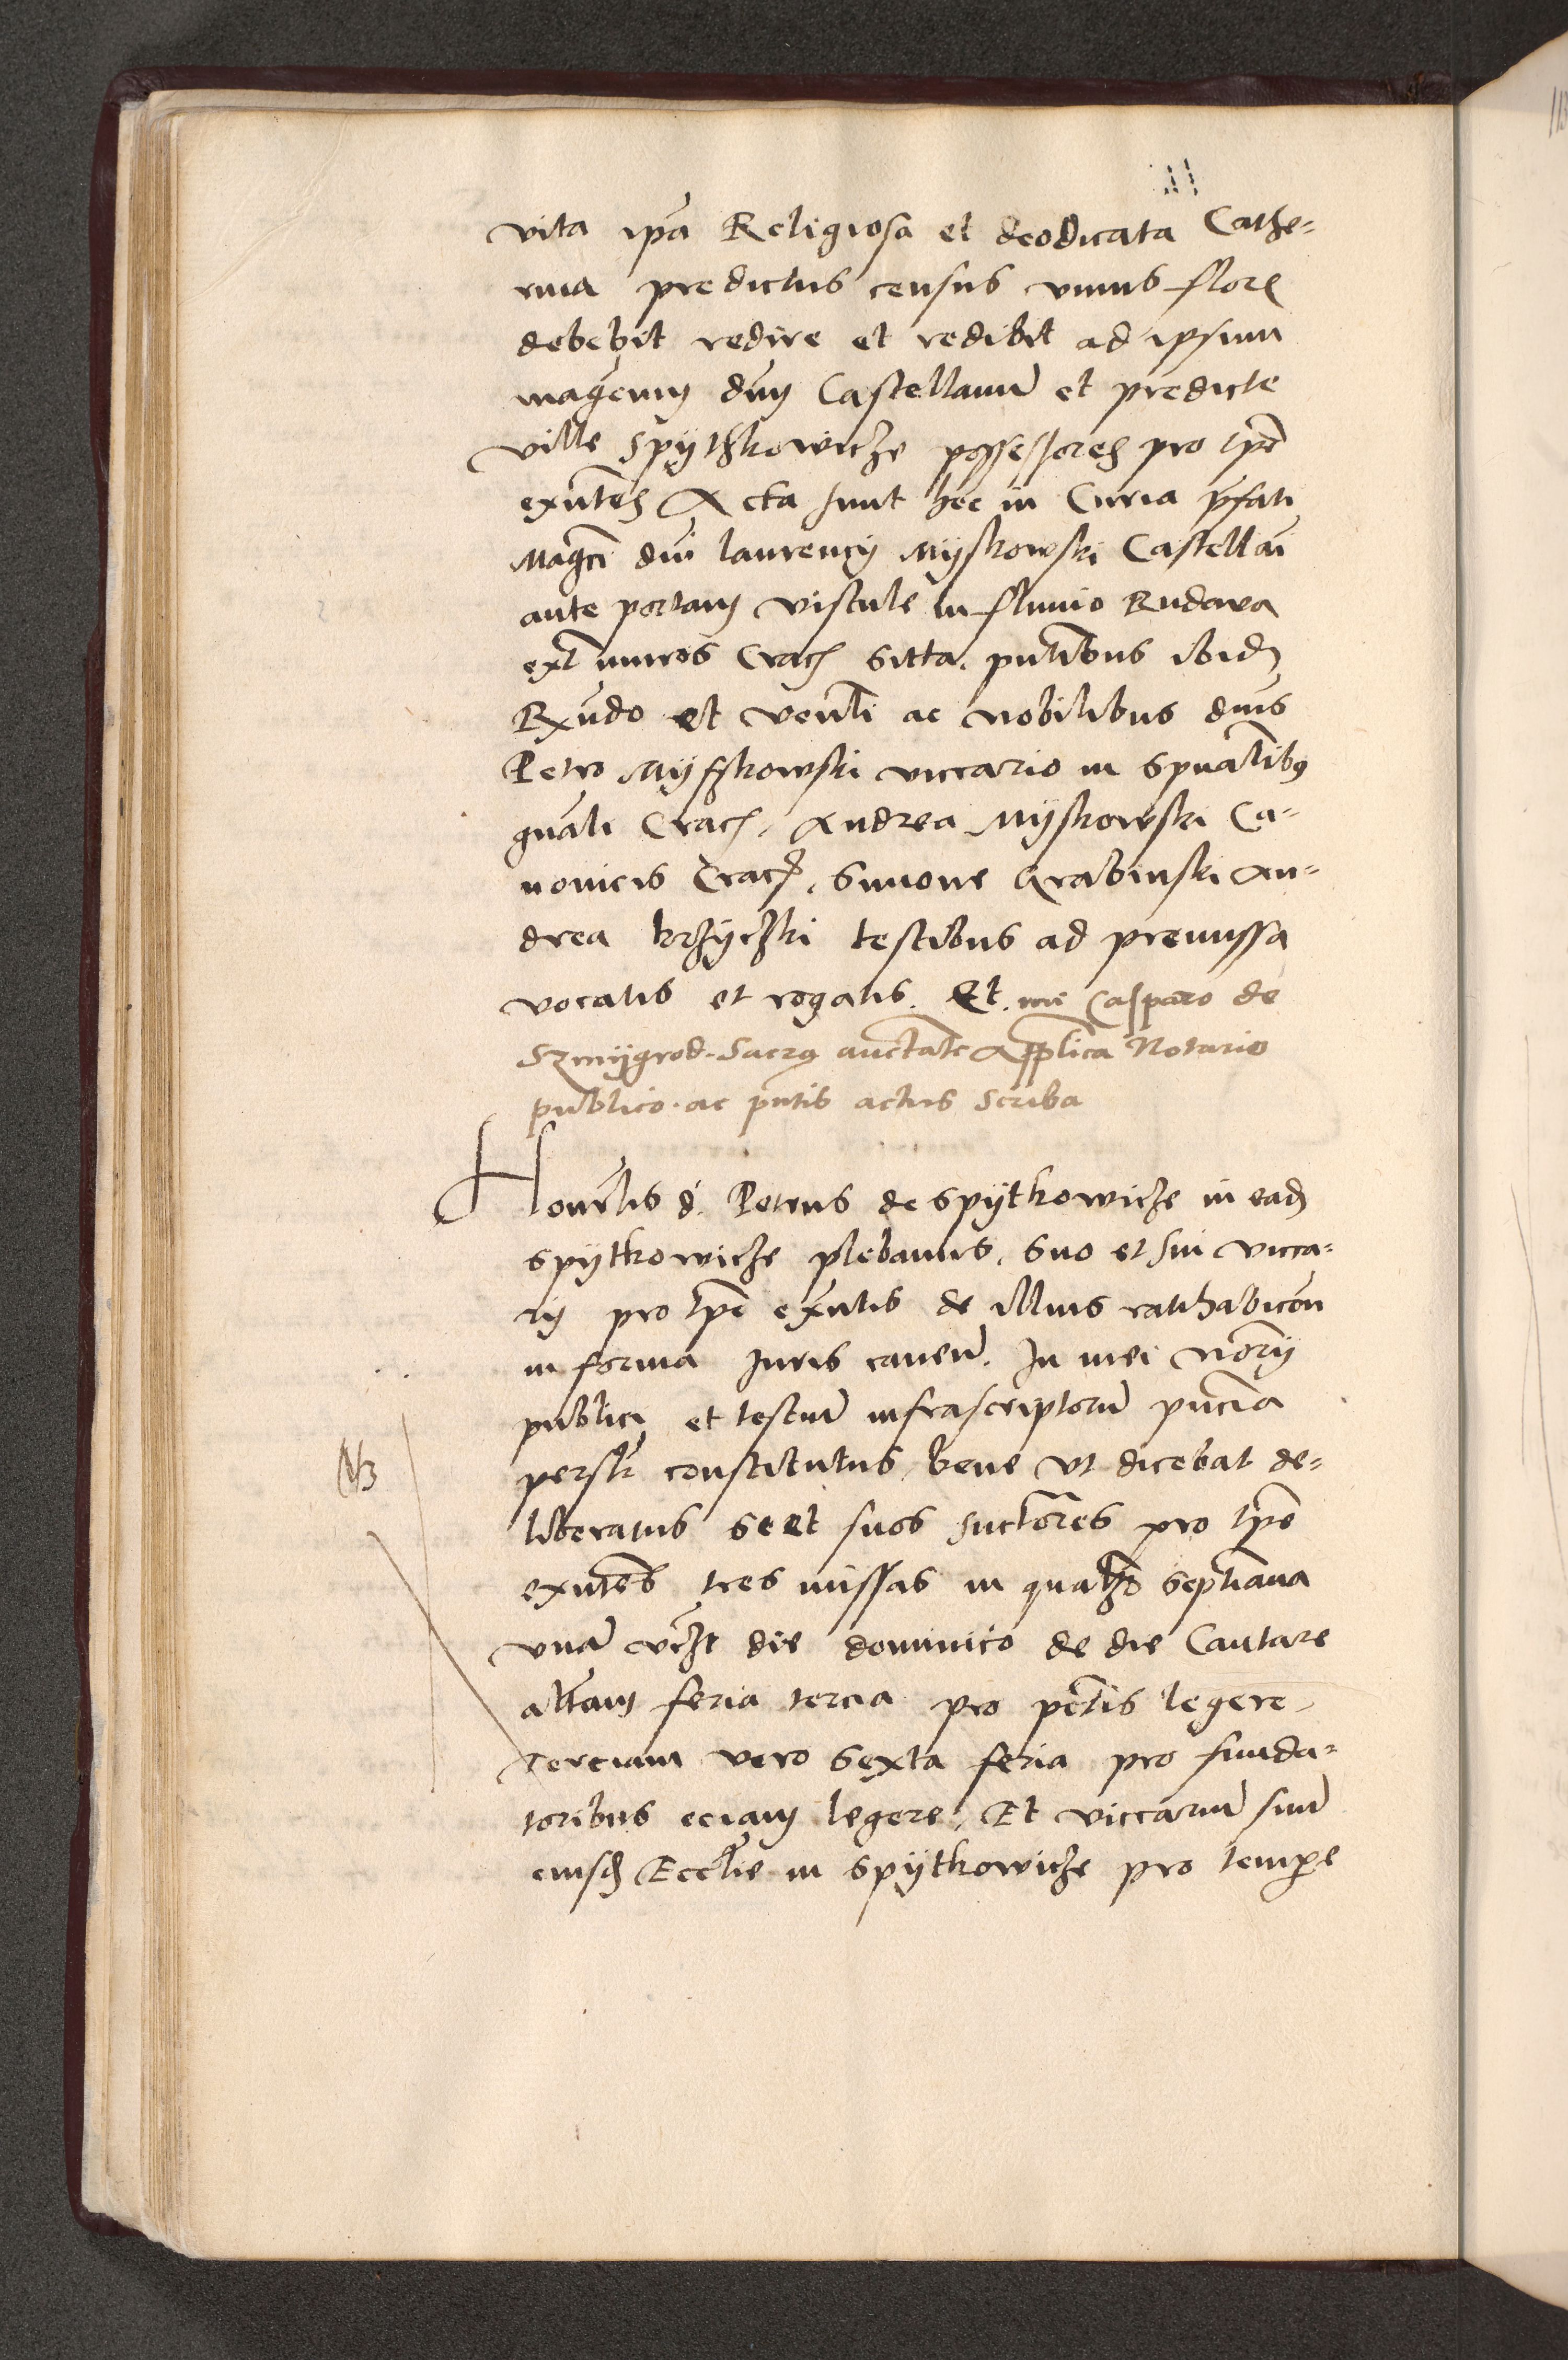 vita ipa Religiosa et deodicata Cathe=
rina predictus census unius flore
debebit redire et redibit ad ipsum
magcum dnm Castellanum et predicte
ville Spythkowicze possessores pro tpe
exntes Acta sunt hec in Curia pfati
Magci dni laurencij Myskowski Castellani
ante portam viscule in fluvio Rudawa
ext muros Crac sitta. pntibus ibid
Rxndo et venli ac nobilibus dnis
Petro Myszkowski viccario in spualibus
gnali Crac, Andrea Myskowski Ca=
nonicis Crac, Simone Grabinski An=
drea krzyczki testibus ad premissa
vocatis et rogatis. Et. mi Casparo de
Szmygrod. Sacra auctate Applica Notario
publico. ac pntis actus scriba
Honorlis d. Petrus de spytkowicze in ead
spytkowicze plebanus, suo et sui vicca=
rij pro tpe exntis de illius ratihabicon
in forma Juris caven. In mei norij
publici et testium infrascriptorum pncia
personlr constitutus, bene ut dicebat de=
liberatus se et suos suctores pro tpe
exntes tres missas in qualibet septiana
vna vczt die dominico de die Cantare
alteram feria tercia pro pctis legere,
Terciam vero sexta feria pro funda=
toribus eciam legere, Et viccarium suum
eiusd Ecclie in spytkowicze pro tempe
NB